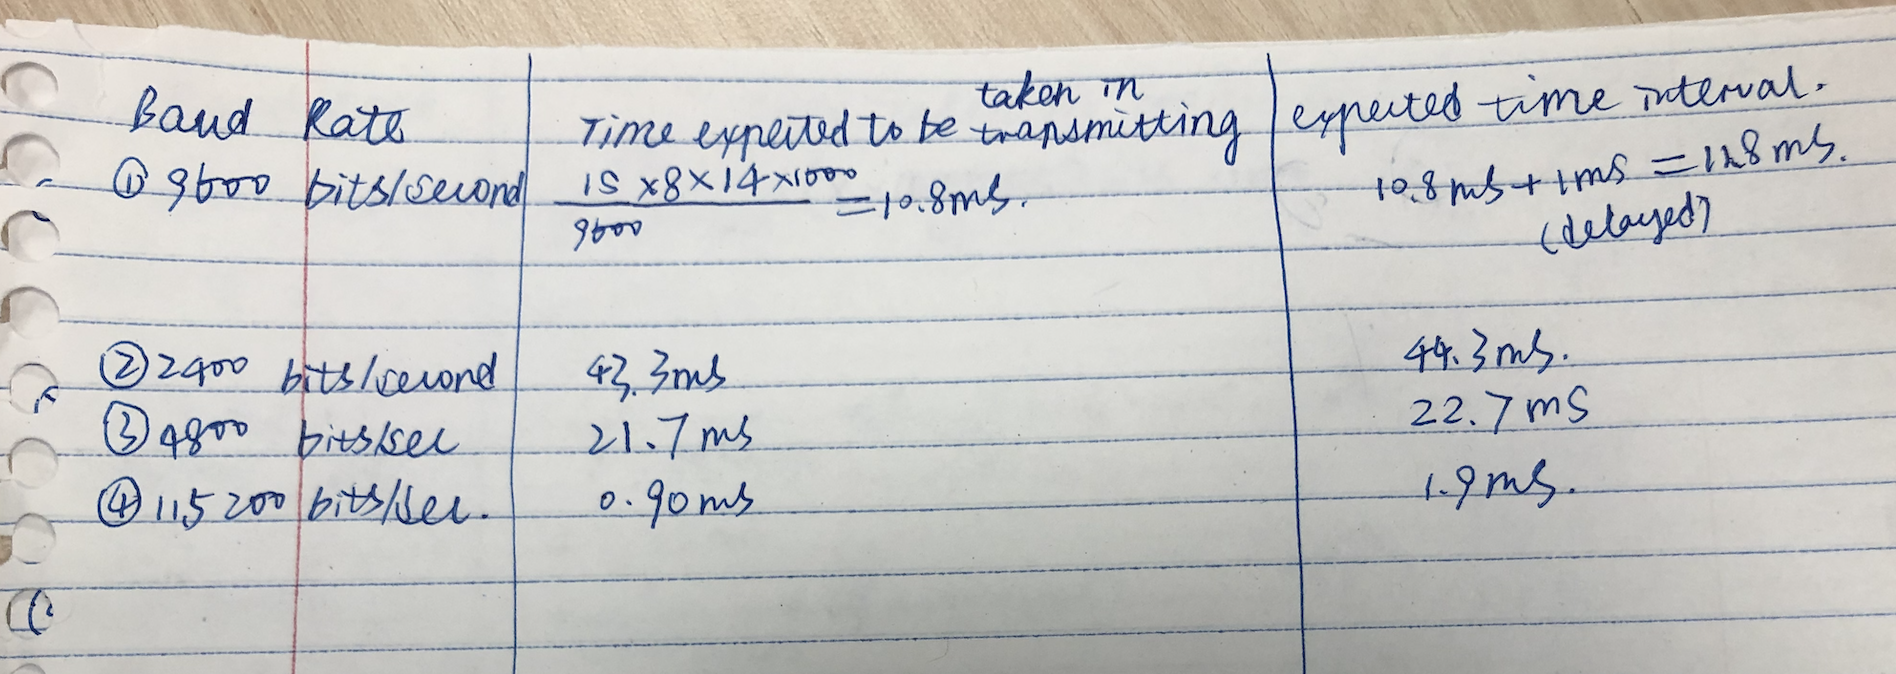 Baud Rate | Time expected to be taken in transmitting | expected time interval.
① 9600 bits/second | 15 x8x14x1000 / 9600 = 10.8ms. | 10.8ms + 1ms = 11.8ms. (delayed)
② 2400 bits/second | 43.3ms | 44.3ms.
③ 4800 bits/sec | 21.7ms | 22.7ms
④ 115200 bits/sec. | 0.90ms | 1.9ms.